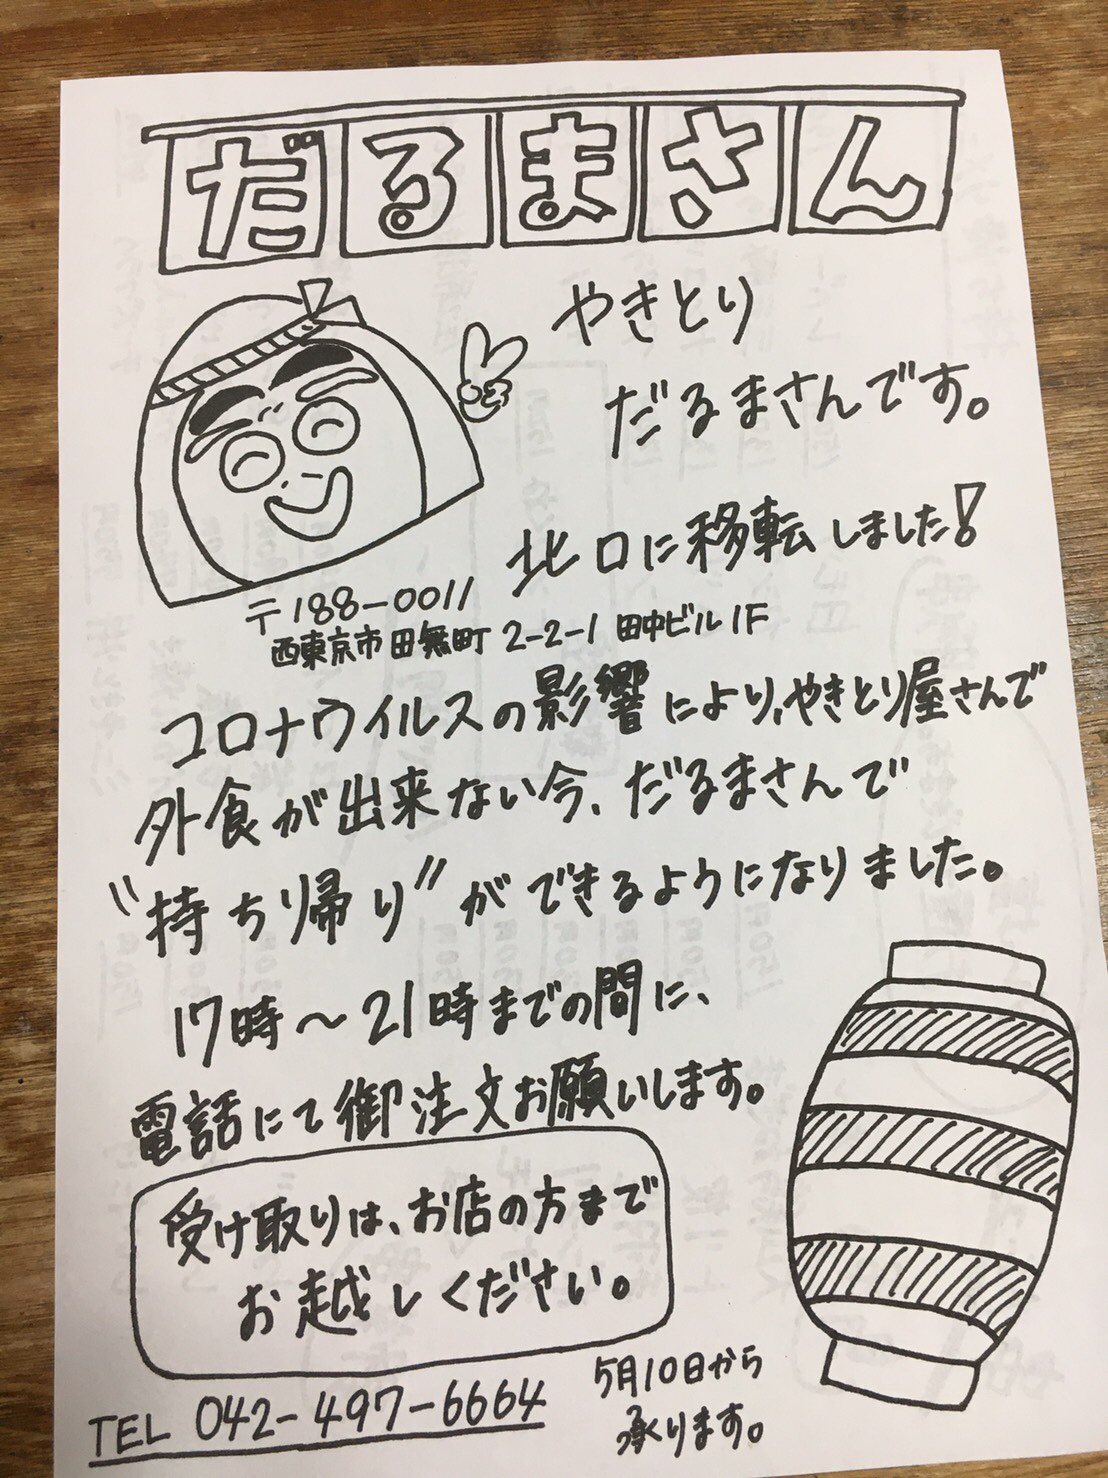 だるまさん
やきとり
だるまさんです。
北口に移転しました!
〒188-0011
西東京市田無町2-2-1 田中ビル1F
コロナウイルスの影響により、やきとり屋さんで
外食が出来ない今、だるまさんで
"持ち帰り"ができるようになりました。
17時〜21時までの間に、
電話にて御注文お願いします。
受け取りは、お店の方まで
お越しください。
TEL 042-497-6664
5月10日から
承ります。